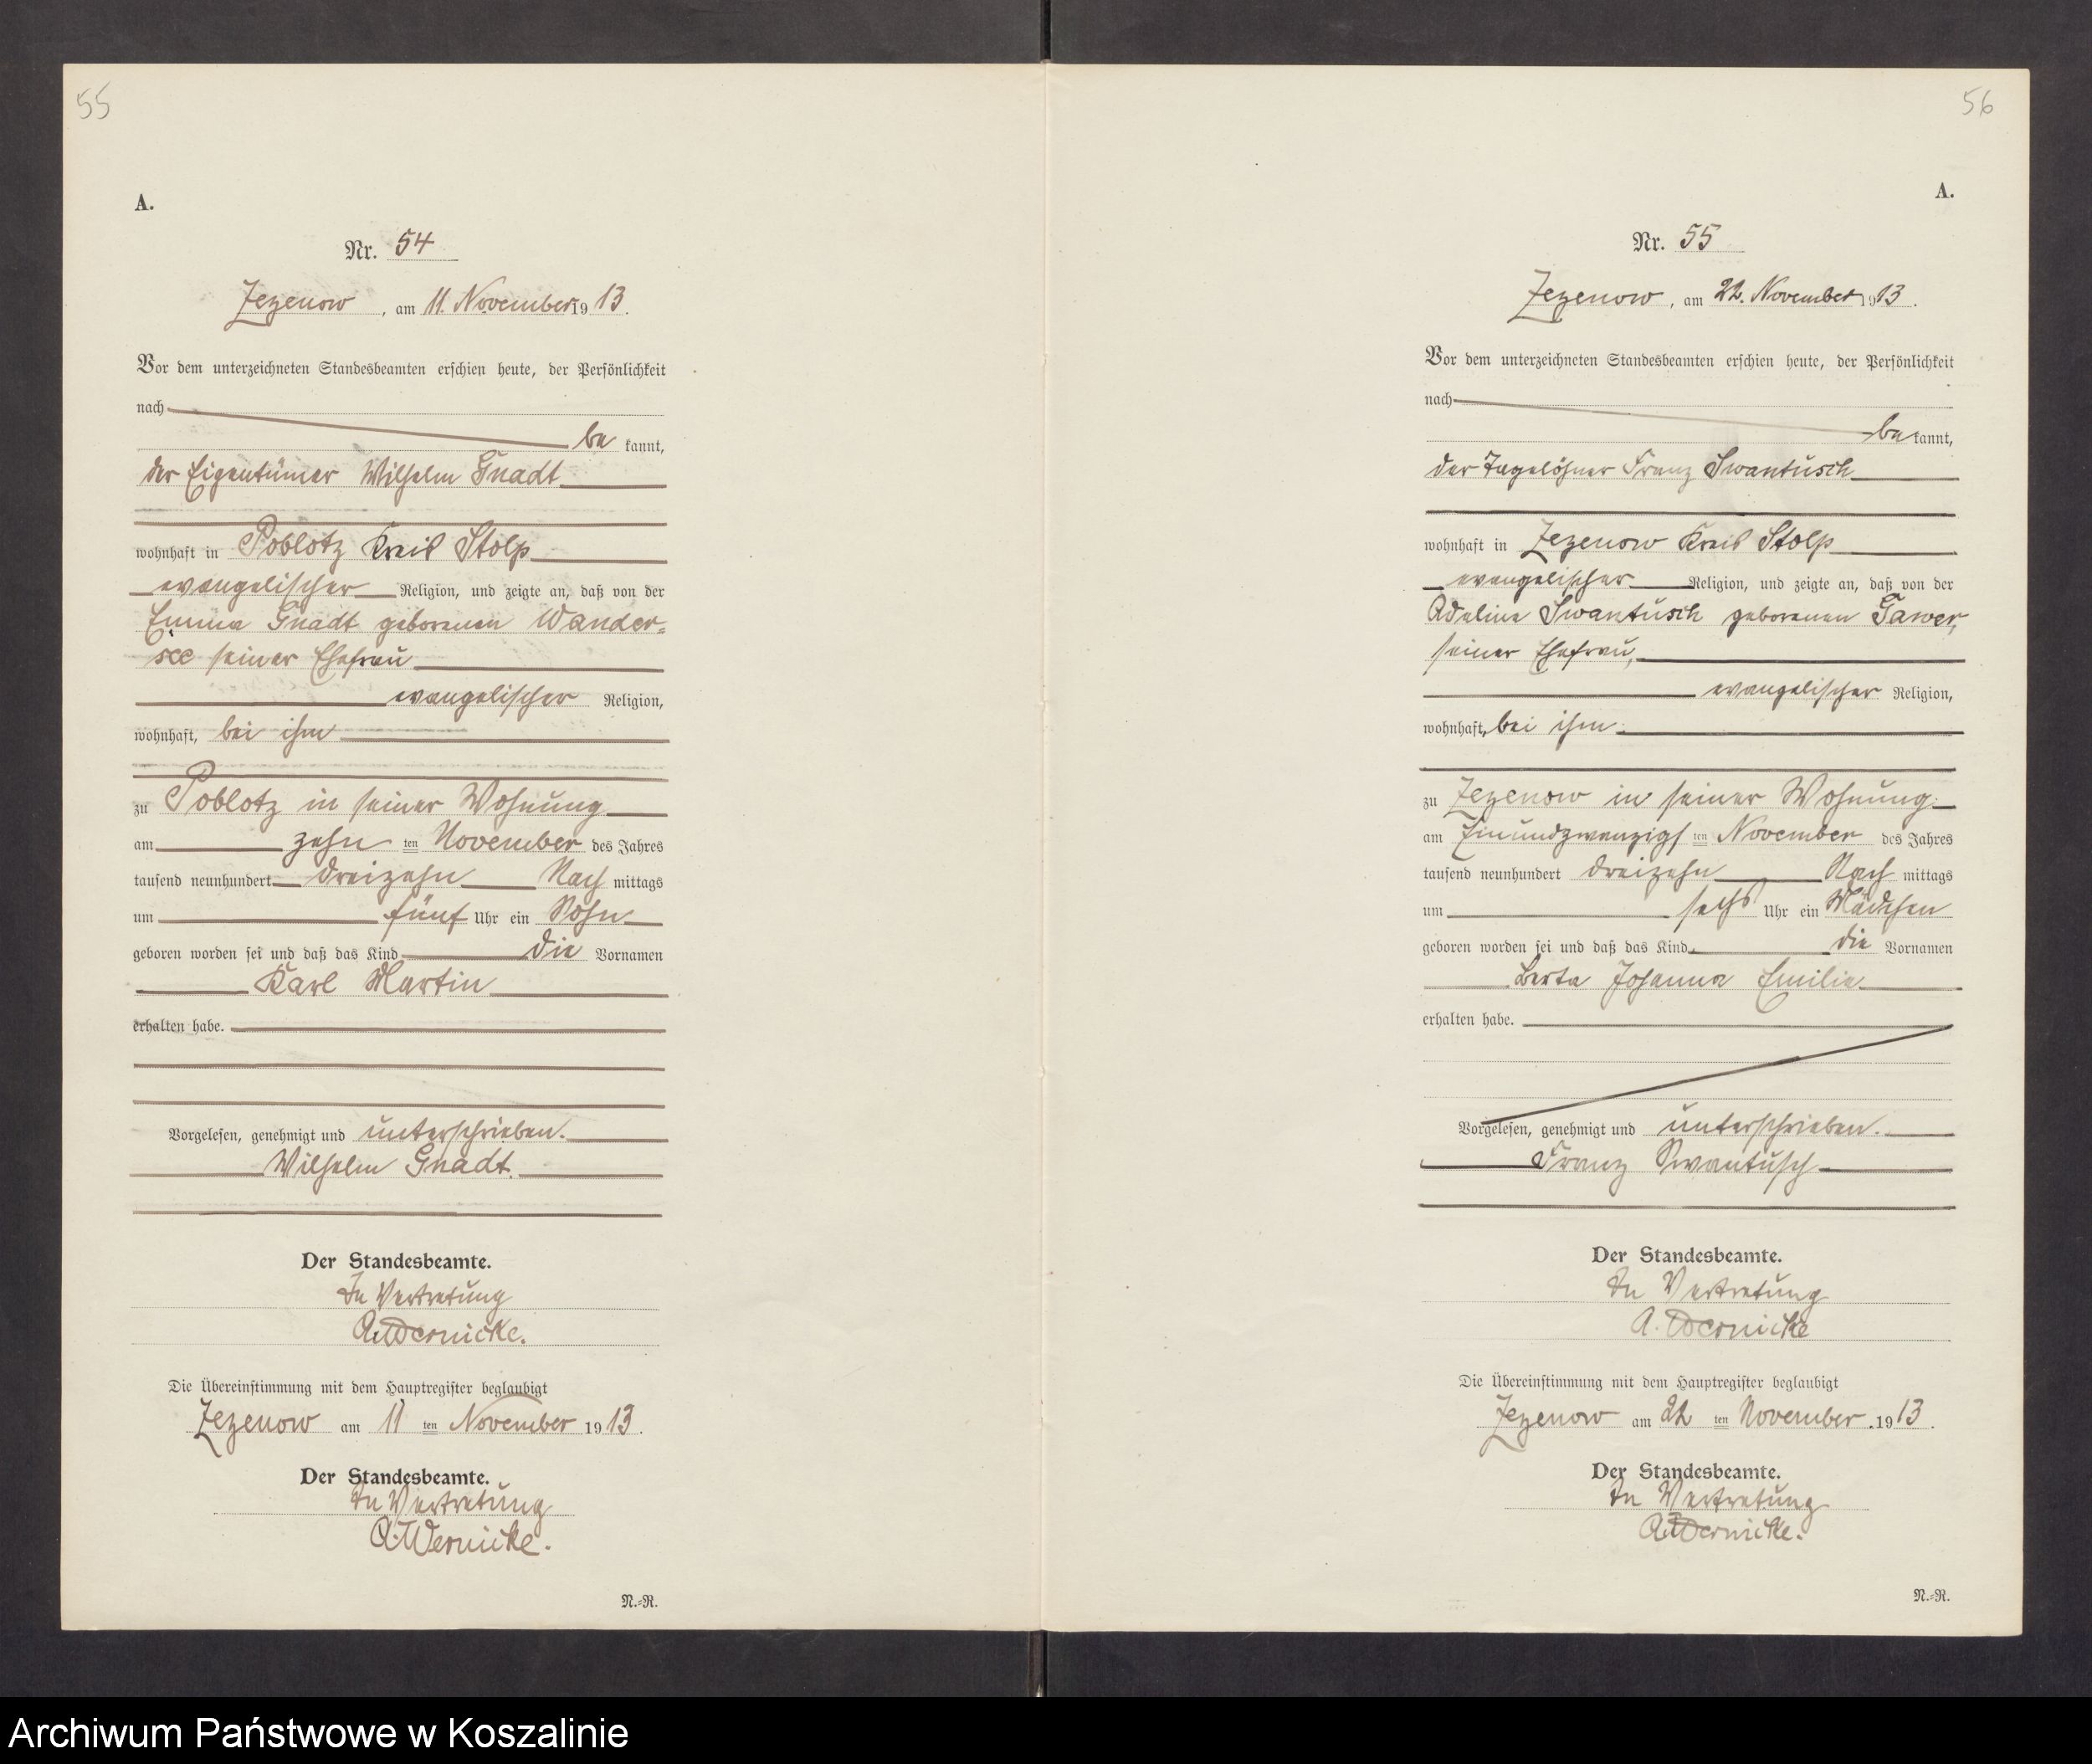 55
A.
Nr. 54
Zezenow, am 11. November 1913.
Vor dem unterzeichneten Standesbeamten erschien heute, der Persönlichkeit
nach
be kannt,
der Eigentümer Wilhelm Gnadt
wohnhaft in Poblotz Kreis Stolp
evangelischer Religion, und zeigte an, daß von der
Emma Gnadt geborenen Wander=
see seiner Ehefrau
evangelischer Religion,
wohnhaft, bei ihm
zu Poblotz in seiner Wohnung
am zehn ten November des Jahres
tausend neunhundert dreizehn Nach mittags
um fünf Uhr ein Sohn
geboren worden sei und daß das Kind die Vornamen
Karl Martin
erhalten habe.
Vorgelesen, genehmigt und unterschrieben.
Wilhelm Gnadt.
Der Standesbeamte.
In Vertretung
A. Wernicke.
Die Übereinstimmung mit dem Hauptregister beglaubigt
Zezenow am 11 ten November 1913.
Der Standesbeamte.
In Vertretung
A. Wernicke.
N.=R.
56
A.
Nr. 55
Zezenow, am 22. November 1913.
Vor dem unterzeichneten Standesbeamten erschien heute, der Persönlichkeit
nach
be kannt,
der Tagelöhner Franz Swantusch
wohnhaft in Zezenow Kreis Stolp
evangelischer Religion, und zeigte an, daß von der
Adeline Swantusch geborenen Gawer,
seiner Ehefrau,
evangelischer Religion,
wohnhaft, bei ihm
zu Zezenow in seiner Wohnung
am Einundzwanzigs ten November des Jahres
tausend neunhundert dreizehn Nach mittags
um sechs Uhr ein Mädchen
geboren worden sei und daß das Kind die Vornamen
Berta Johanna Emilie
erhalten habe.
Vorgelesen, genehmigt und unterschrieben.
Franz Swantusch
Der Standesbeamte.
In Vertretung
A. Wernicke
Die Übereinstimmung mit dem Hauptregister beglaubigt
Zezenow am 22 ten November 1913.
Der Standesbeamte.
In Vertretung
A. Wernicke.
N.=R.
Archiwum Państwowe w Koszalinie